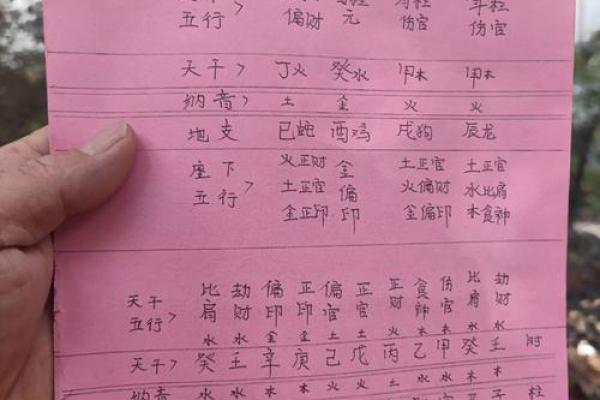 五行> 偏财 元 伤官 伤官
天干> 丁火 癸水 甲木 甲木
纳音> 土 金 火 火
地支 巳蛇 酉鸡 戌狗 辰龙
座下五行> 火正财 金 土正官 土正官
土正官 偏 火偏财 水比肩
金正印 印 金偏印 木食神
天干五行> 比肩 劫财 偏印 正印 偏官 正官 正财 食神 伤官 比肩 劫财
水 水 金 金 土 土 火 木 木 水 水
天干> 癸 壬 辛 庚 己 戊 丙 乙 甲 癸 壬 时
纳音 水 水 木 木 火 火 土 水 水 木 木 柱